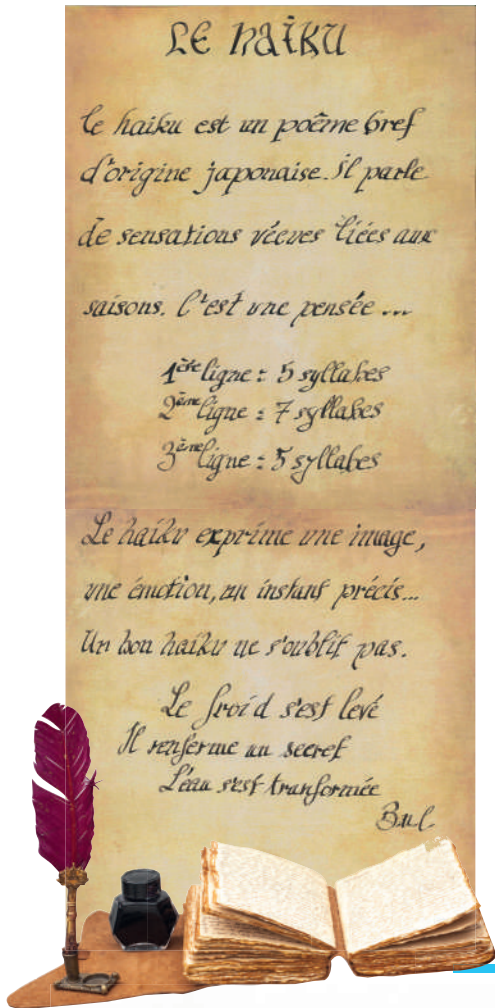 LE HAIKU
Le haiku est un poême bref
d'origine japonaise. Il parle
de sensations véeves liées aux
saisons. C'est une pensée ...
1ère ligne : 5 syllabes
2ème ligne : 7 syllabes
3ème ligne : 5 syllabes
Le haiku exprime une image,
une émotion, un instant précis...
Un bon haiku ne s'oublit pas.
Le froid s'est levé
Il renferme un secret
L'éau s'est tranformée